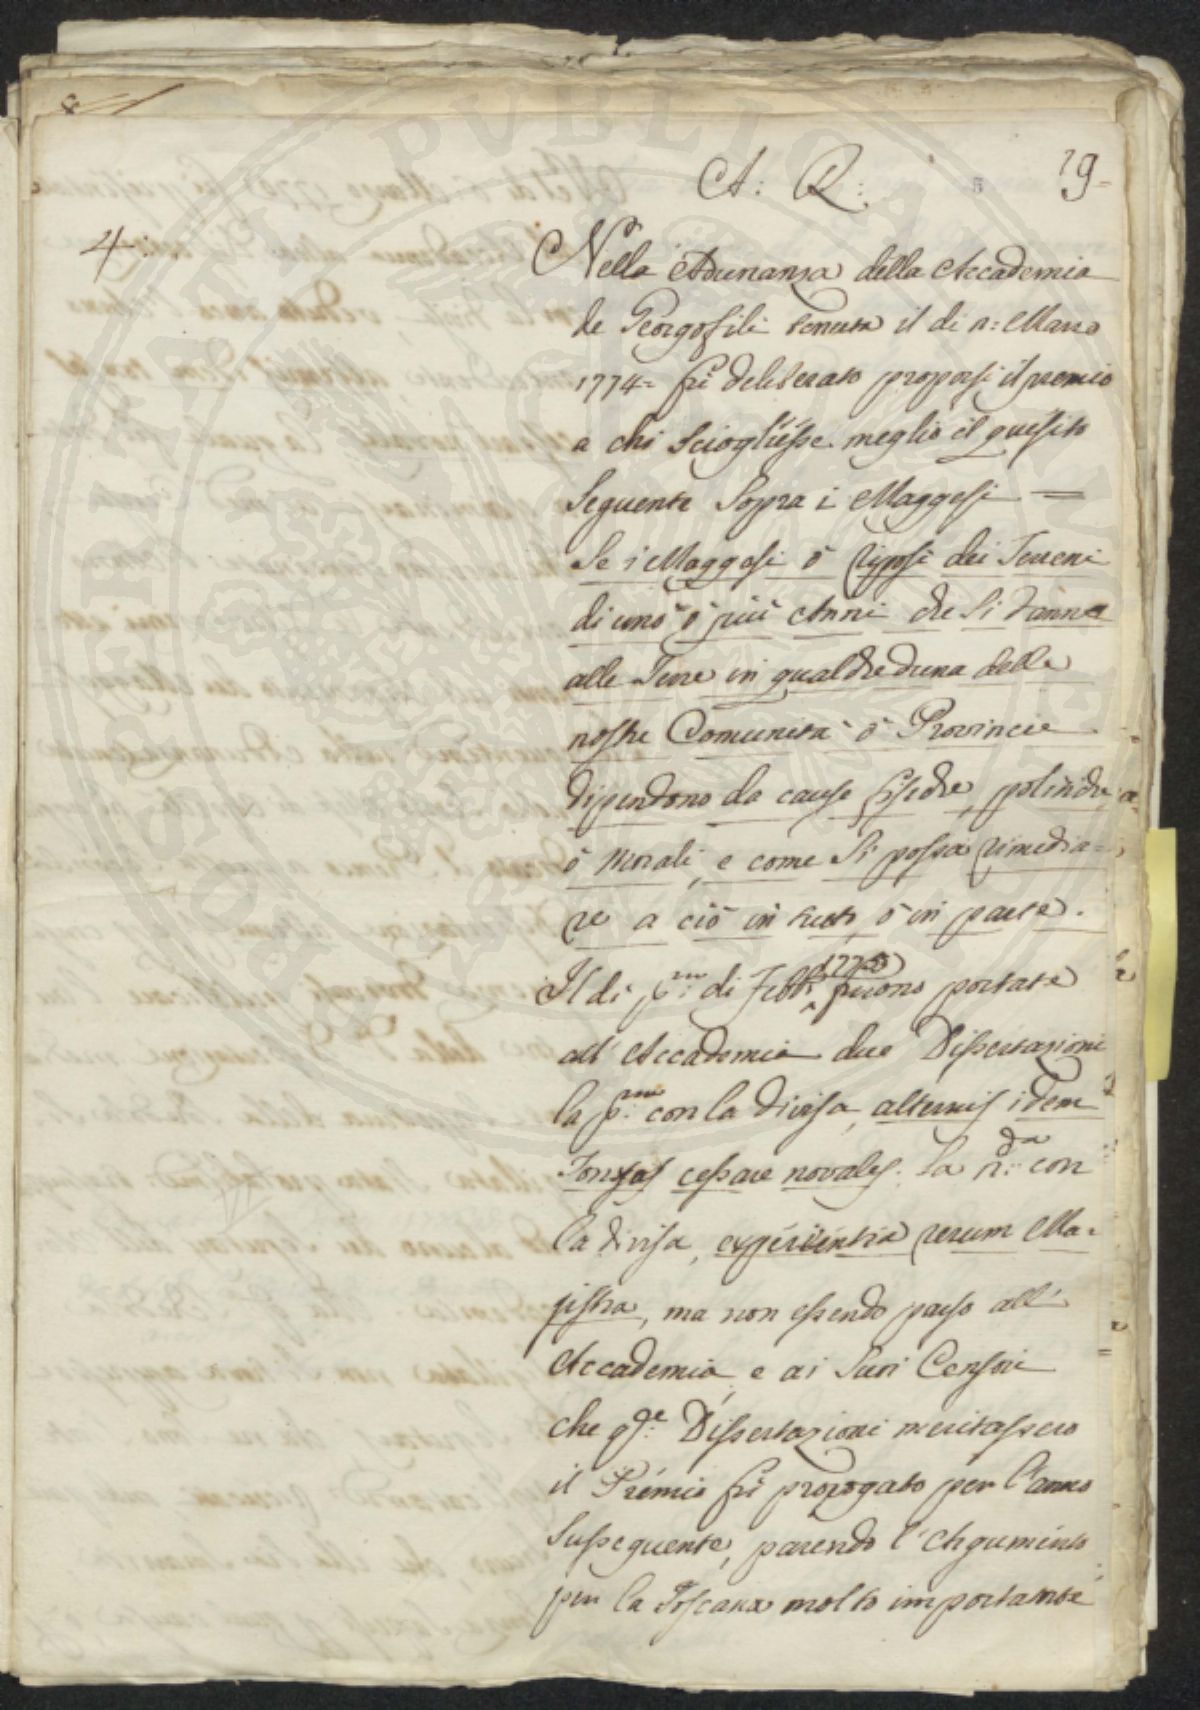 A: R:
19=
4.
Nella Adunanza della Accademia
de Georgofili tenuta il di 2: Marzo
1774= fù deliberato proporsi il premio
a chi sciogliesse meglio il quesito
seguente sopra i Maggesi =
Se i Maggesi ò riposi dei Terreni
di uno ò più Anni che si danno
alle Terre in qualcheduna delle
nostre Comunità ò Provincie
dipendono da cause fisiche, politiche,
ò morali, e come si possa rimedia=
re a ciò in tutto, ò in parte.
Il di p.mo di Febb.o furono portate
all' Accademia due Dissertazioni
la p.ma con la divisa, alternis idem
Tonsas cessare novales. La 2.da con
la divisa, experientia rerum Ma=
jistra, ma non essendo parso all'
Accademia, e ai suoi Censori
che q.te Dissertazioni meritassero
il Prémio fù prorogato per l'anno
sussequente, parendo l'Argumento
per la Toscana molto importante